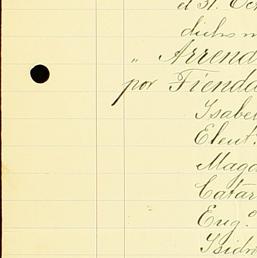 el 31. Oct
dichs m
„ Arrend
por Tienda
Isabel
Eleut.
Magd
Catar
Eug.º
Isidro